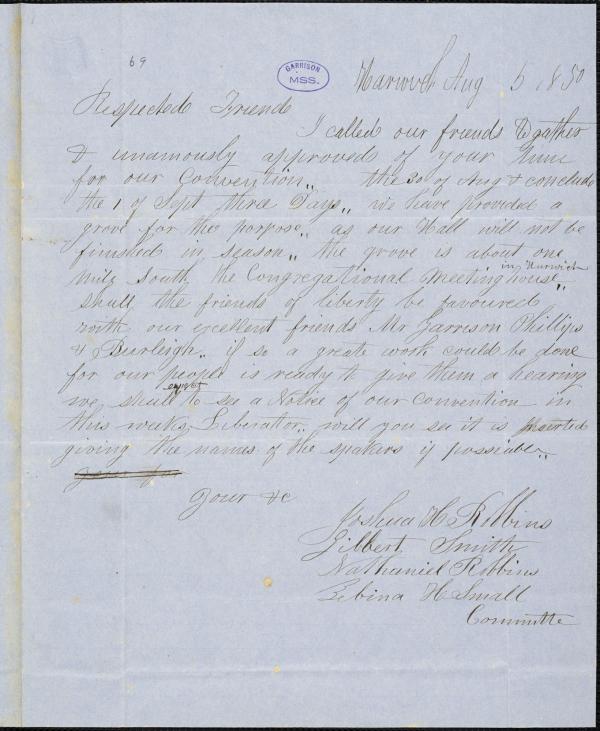 69
GARRISON
MSS.
Harwich Aug 5 1850
Respected Friends
I called our friends together
& unamously approveds of your time
for our Convention,, the 30 of Aug & conclude
the 1 of Sept three Days,, we have provided a
grove for the porpose,, as our Hall will not be
finished in season,, the grove is about one
mile South the Congregational meeting house,,
in Harwich
shall the friends of liberty be favoured
with our excellent friends Mr Garrison Phillips
& Burleigh,, if so a greate work could be done
for our people is ready to give them a hearing
we shall expect to see a Notice of our Convention in
this weeks Liberator,, will you see it is inserted
giving the names of the speakers if possiable,,
your &c
Joshua H Robbins
Gilbert Smith
Nathaniel Robbins
Zebina H Small
Committe